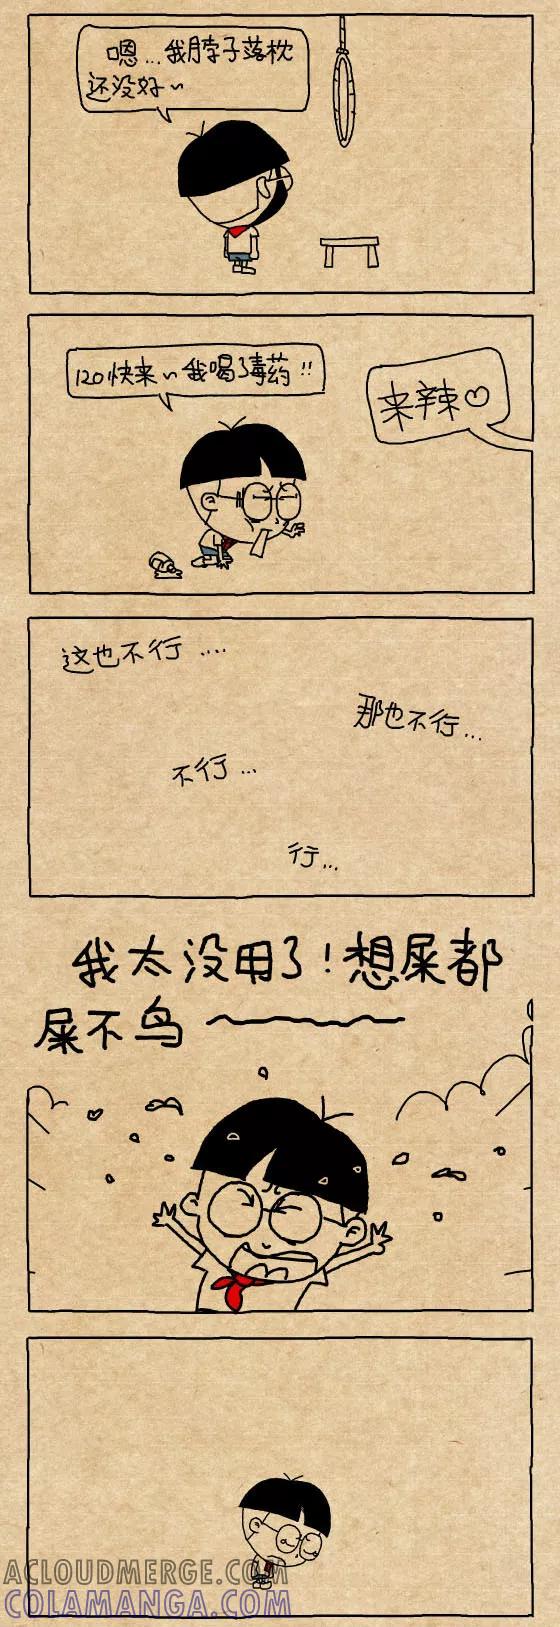 嗯…我脖子落枕
还没好~
120快来~我喝了毒药!!
来辣♡
这也不行....
那也不行...
不行...
行...
我太没用了!想屎都
屎不鸟~~~~
ACLOUDMERGE.COM
COLAMANGA.COM